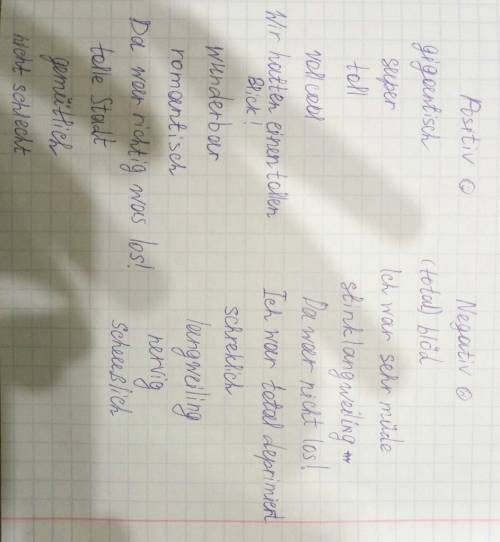 Positiv ☺
gigantisch
super
toll
voll cool
Wir hatten einen tollen
Blick!
wunderbar
romantisch
Da war richtig was los!
tolle Stadt
gemütlich
nicht schlecht
Negativ ☹
(total) blöd
Ich war sehr müde
stinklangweiling
Da war nicht los!
Ich war total deprimiert
schreklich
langweiling
nervig
Scheeßlich